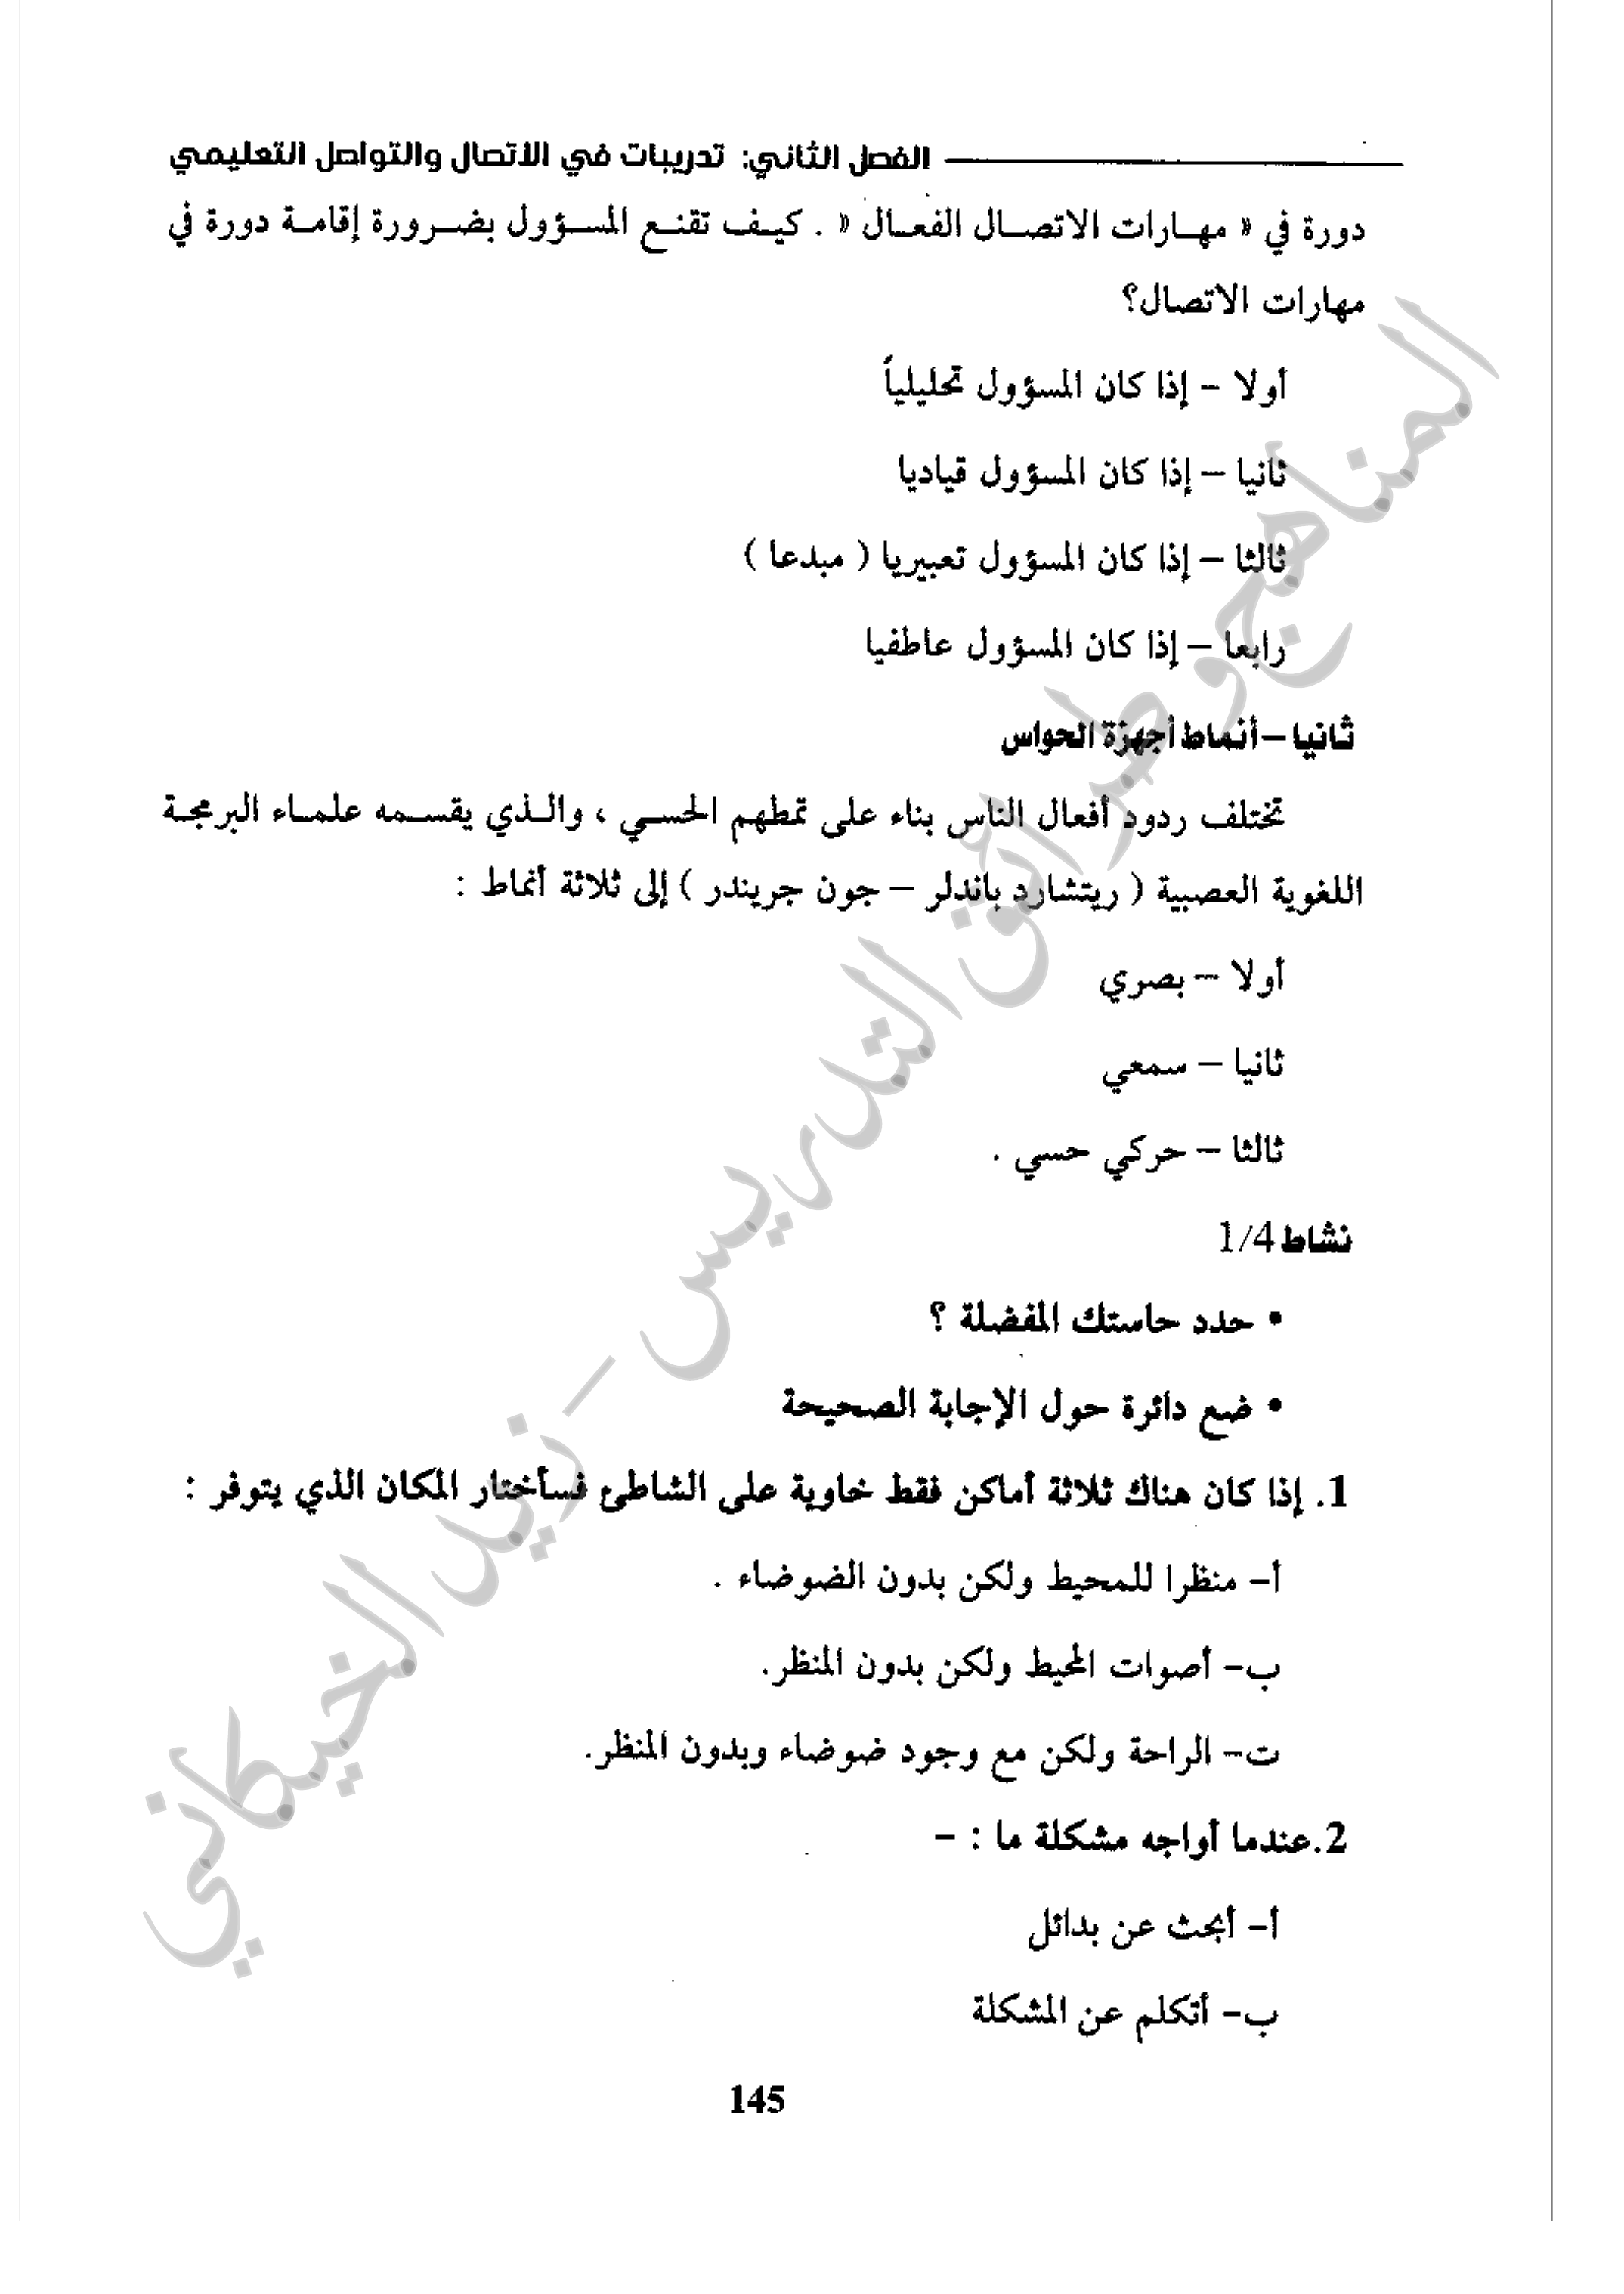 الفصل الثاني: تدريبات في الاتصال والتواصل التعليمي
دورة في « مهـارات الاتصـال الفعـال « . كيـف تقنـع المسـؤول بضـرورة إقامـة دورة في
مهارات الاتصال؟
أولا – إذا كان المسؤول تحليلياً
ثانيا – إذا كان المسؤول قياديا
ثالثا – إذا كان المسؤول تعبيريا ( مبدعا )
رابعا – إذا كان المسؤول عاطفيا
ثانيا – أنماط أجهزة الحواس
تختلف ردود أفعال الناس بناء على نمطهم الحسـي ، والـذي يقسـمه علمـاء البرمجـة
اللغوية العصبية ( ريتشارد باندلر – جون جريندر ) إلى ثلاثة أنماط :
أولا – بصري
ثانيا – سمعي
ثالثا – حركي حسي .
نشاط 1/4
• حدد حاستك المفضلة ؟
• ضع دائرة حول الإجابة الصحيحة
1. إذا كان هناك ثلاثة أماكن فقط خاوية على الشاطئ فسأختار المكان الذي يتوفر :
أ- منظرا للمحيط ولكن بدون الضوضاء .
ب- أصوات المحيط ولكن بدون المنظر.
ت- الراحة ولكن مع وجود ضوضاء وبدون المنظر.
2.عندما أواجه مشكلة ما : –
أ- أبحث عن بدائل
ب- أتكلم عن المشكلة
145
المناهج وطرائق التدريس - زيد الخيكاني